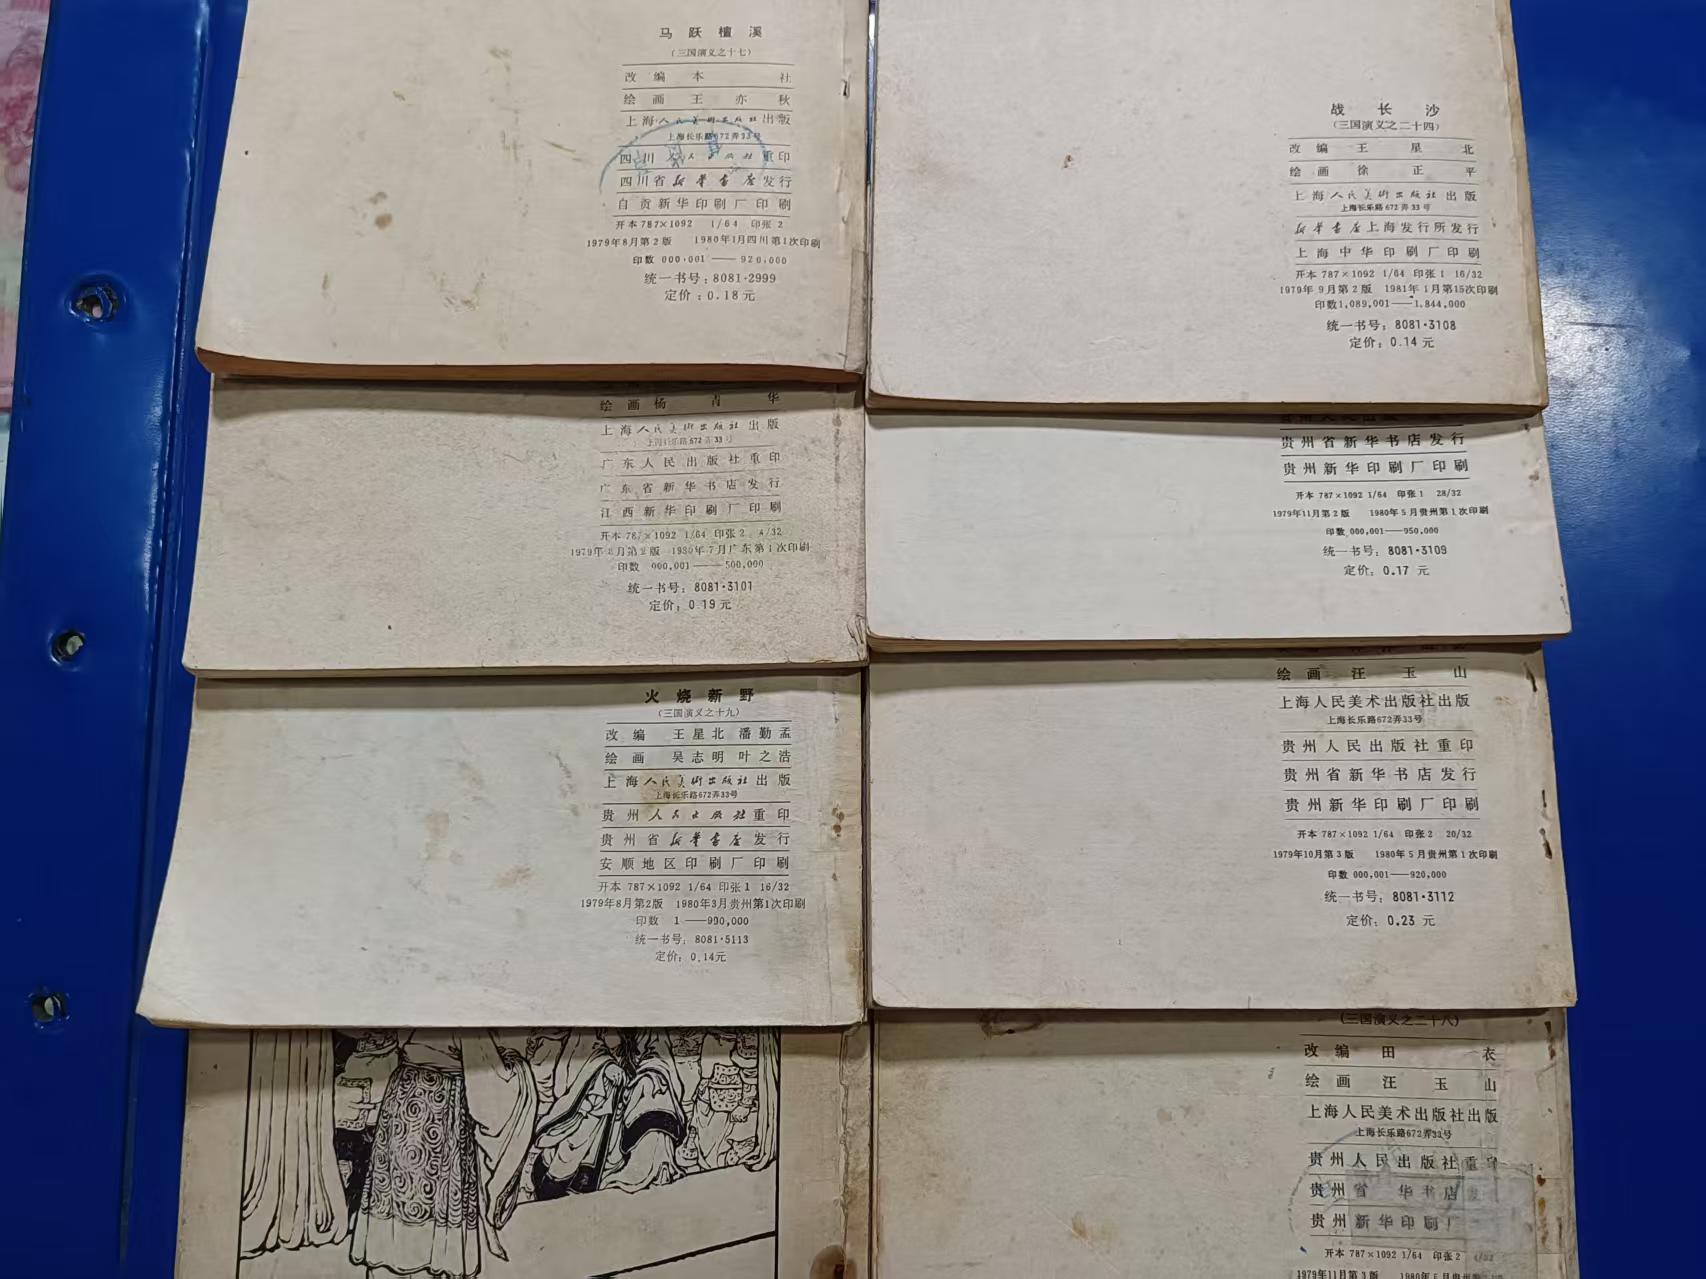 马跃檀溪
(三国演义之十七)
改编 本社
绘画 王亦秋
上海人民美术出版社出版
上海长乐路672弄33号
四川人民出版社重印
四川省新华书店发行
自贡新华印刷厂印刷
开本 787×1092 1/64 印张 2
1979年8月第2版 1980年1月四川第1次印刷
印数 000,001——920,000
统一书号：8081·2999
定价：0.18元
绘画 杨青华
上海人民美术出版社出版
上海长乐路672弄33号
广东人民出版社重印
广东省新华书店发行
江西新华印刷厂印刷
开本 787×1092 1/64 印张 2 4/32
1979年8月第2版 1980年7月广东第1次印刷
印数 000,001——500,000
统一书号：8081·3101
定价：0.19元
火烧新野
(三国演义之十九)
改编 王星北 潘勤孟
绘画 吴志明 叶之浩
上海人民美术出版社出版
上海长乐路672弄33号
贵州人民出版社重印
贵州省新华书店发行
安顺地区印刷厂印刷
开本 787×1092 1/64 印张 1 16/32
1979年8月第2版 1980年3月贵州第1次印刷
印数 1——990,000
统一书号：8081·5113
定价：0.14元
战长沙
(三国演义之二十四)
改编 王星北
绘画 徐正平
上海人民美术出版社出版
上海长乐路672弄33号
新华书店上海发行所发行
上海中华印刷厂印刷
开本 787×1092 1/64 印张 1 16/32
1979年9月第2版 1981年1月第15次印刷
印数1,089,001——1,844,000
统一书号：8081·3108
定价：0.14元
贵州人民出版社重印
贵州省新华书店发行
贵州新华印刷厂印刷
开本 787×1092 1/64 印张 1 28/32
1979年11月第2版 1980年5月贵州第1次印刷
印数 000,001—950,000
统一书号：8081·3109
定价：0.17元
绘画 汪玉山
上海人民美术出版社出版
上海长乐路672弄33号
贵州人民出版社重印
贵州省新华书店发行
贵州新华印刷厂印刷
开本 787×1092 1/64 印张 2 20/32
1979年10月第3版 1980年5月贵州第1次印刷
印数 000,001—920,000
统一书号：8081·3112
定价：0.23元
(三国演义之二十八)
改编 田衣
绘画 汪玉山
上海人民美术出版社出版
上海长乐路672弄33号
贵州人民出版社重印
贵州省 华书店
贵州新华印刷厂
开本 787×1092 1/64 印张 2
1979年11月第3版 1980年5月贵州第1次印刷